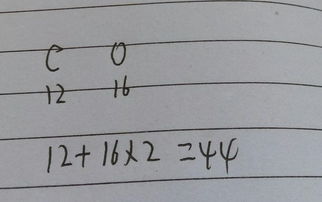 C O
12 16
12+16×2=44